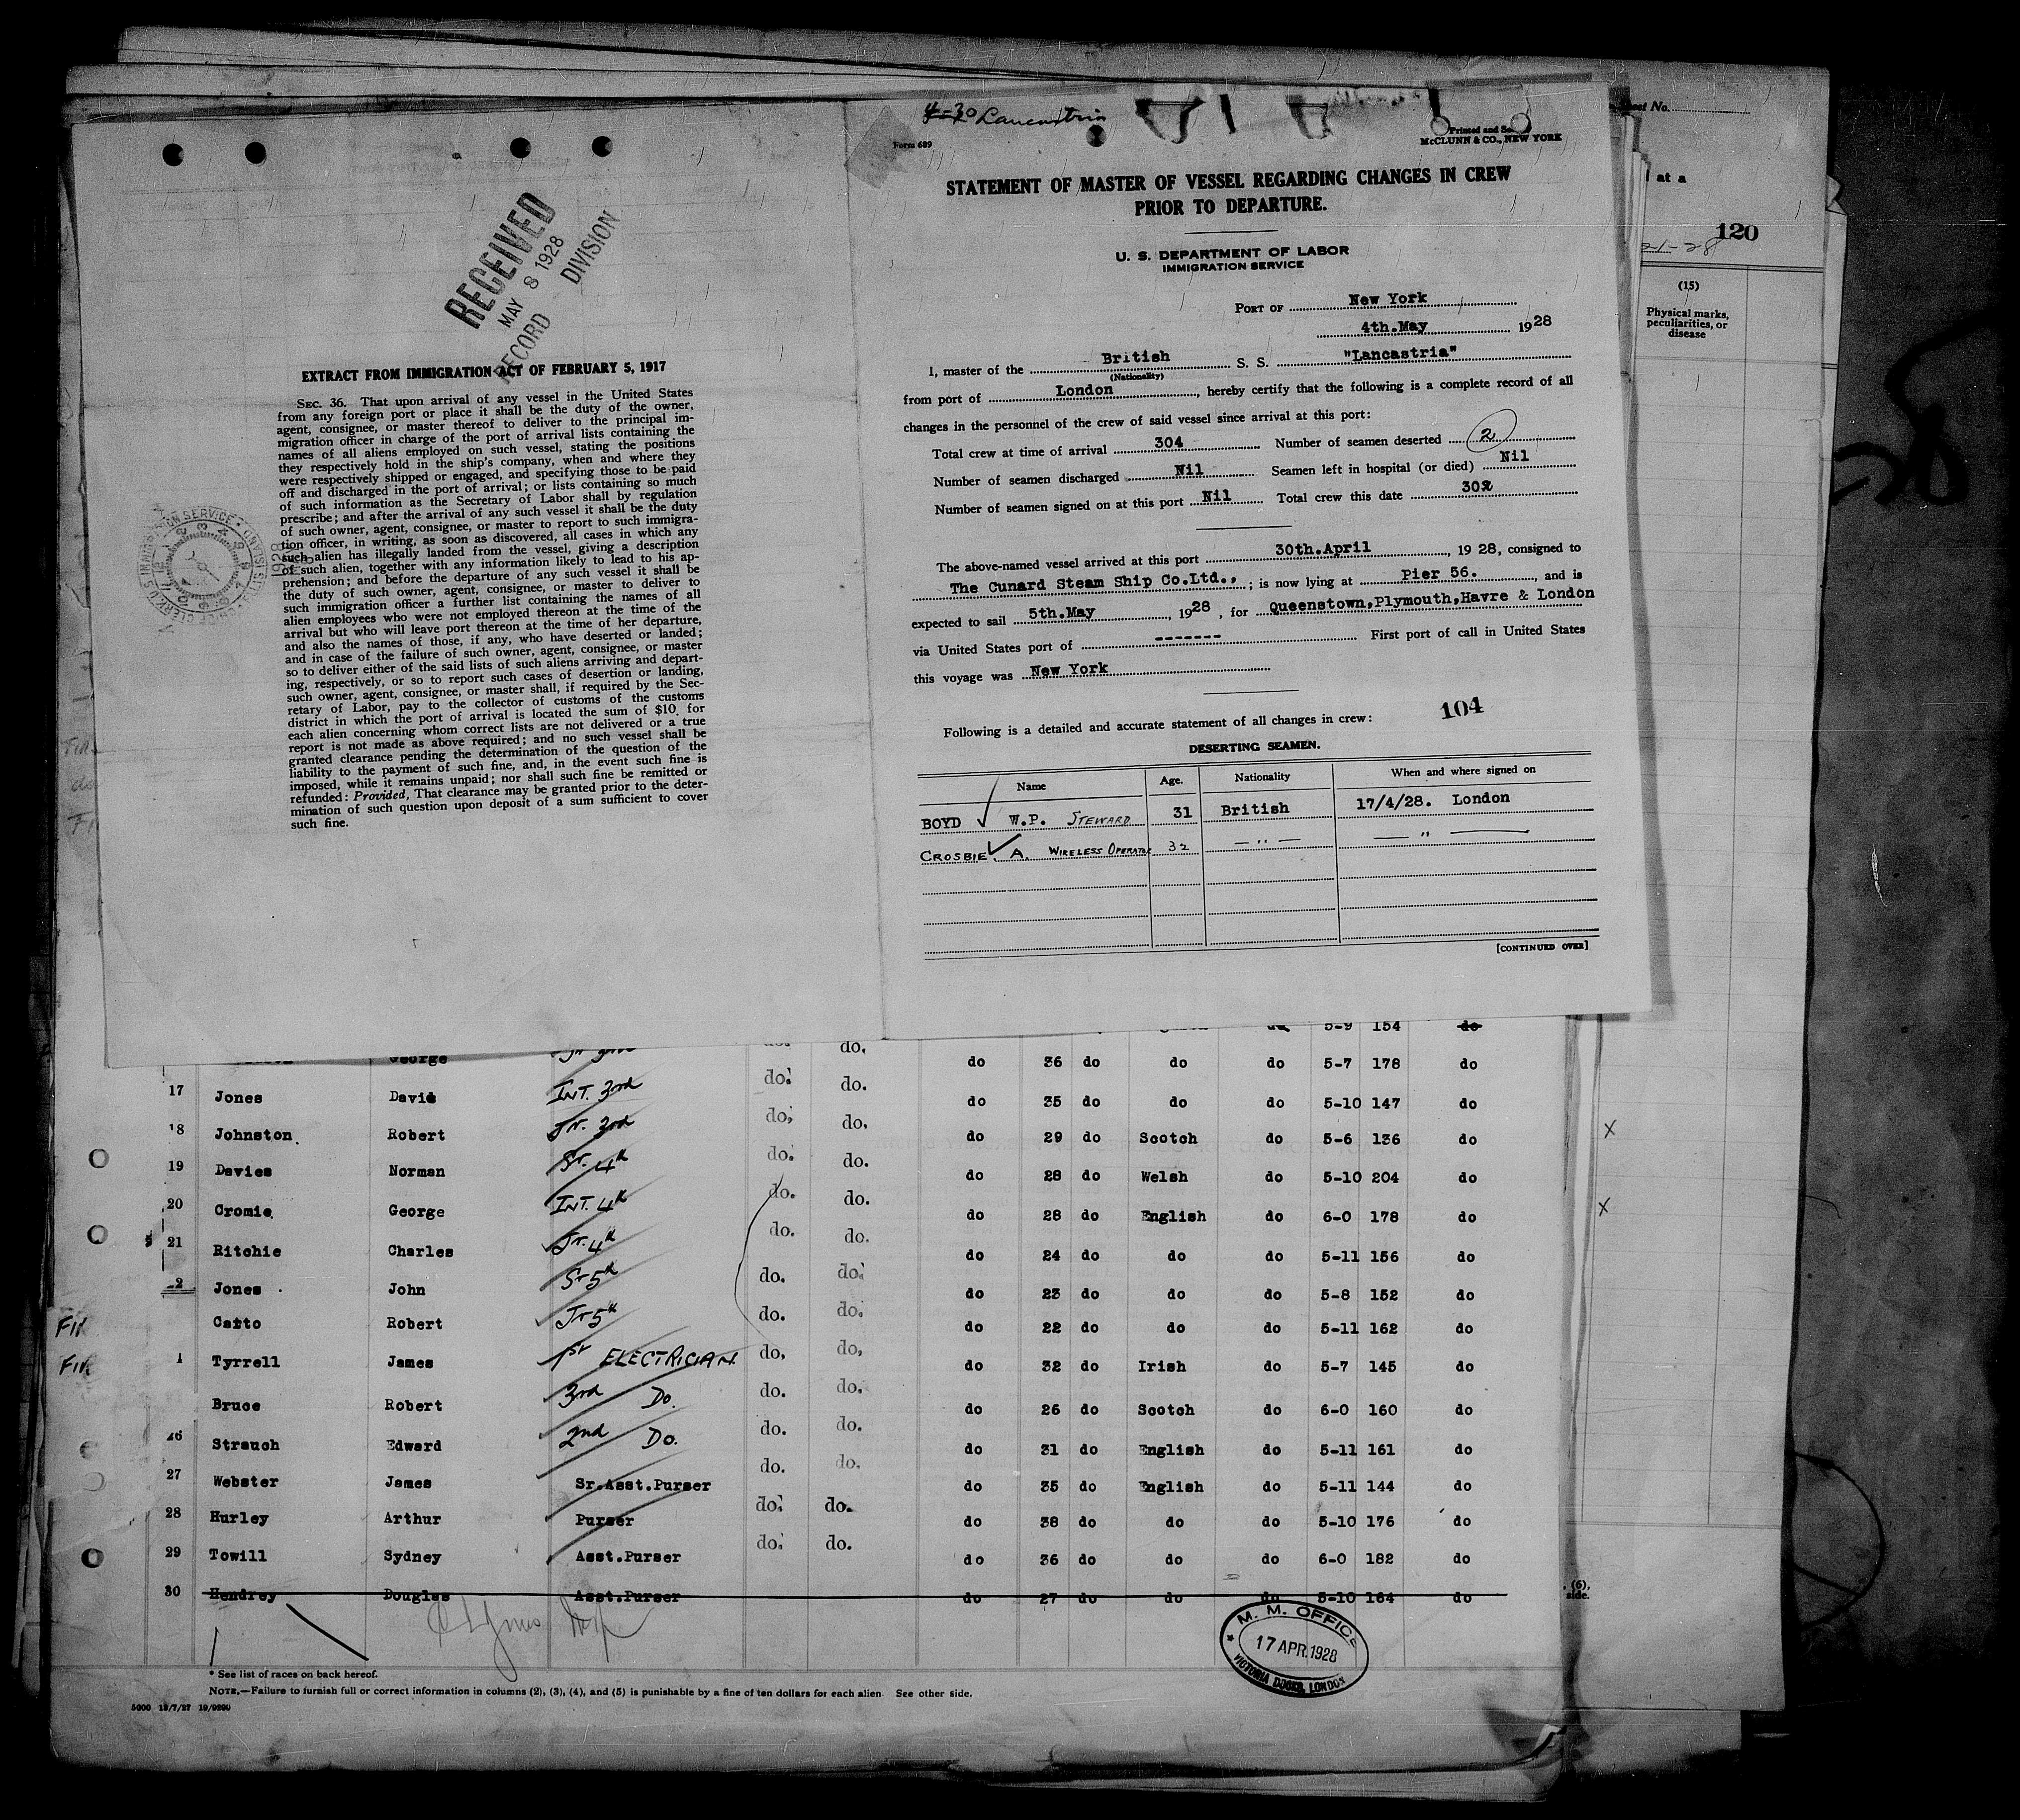 RECEIVED
MAY 8 1928
RECORD DIVISION
EXTRACT FROM IMMIGRATION ACT OF FEBRUARY 5, 1917
SEC. 36. That upon arrival of any vessel in the United States
from any foreign port or place it shall be the duty of the owner,
agent, consignee, or master thereof to deliver to the principal im-
migration officer in charge of the port of arrival lists containing the
names of all aliens employed on such vessel, stating the positions
they respectively hold in the ship's company, when and where they
were respectively shipped or engaged, and specifying those to be paid
off and discharged in the port of arrival; or lists containing so much
of such information as the Secretary of Labor shall by regulation
prescribe; and after the arrival of any such vessel it shall be the duty
of such owner, agent, consignee, or master to report to such immigra-
tion officer, in writing, as soon as discovered, all cases in which any
such alien has illegally landed from the vessel, giving a description
of such alien, together with any information likely to lead to his ap-
prehension; and before the departure of any such vessel it shall be
the duty of such owner, agent, consignee, or master to deliver to
such immigration officer a further list containing the names of all
alien employees who were not employed thereon at the time of the
arrival but who will leave port thereon at the time of her departure,
and also the names of those, if any, who have deserted or landed;
and in case of the failure of such owner, agent, consignee, or master
so to deliver either of the said lists of such aliens arriving and depart-
ing, respectively, or so to report such cases of desertion or landing,
such owner, agent, consignee, or master shall, if required by the Sec-
retary of Labor, pay to the collector of customs of the customs
district in which the port of arrival is located the sum of $10, for
each alien concerning whom correct lists are not delivered or a true
report is not made as above required; and no such vessel shall be
granted clearance pending the determination of the question of the
liability to the payment of such fine, and, in the event such fine is
imposed, while it remains unpaid; nor shall such fine be remitted or
refunded: Provided, That clearance may be granted prior to the deter-
mination of such question upon deposit of a sum sufficient to cover
such fine.
4-30 Lancastria
Form 689
Printed and
McCLUNN & CO., NEW YORK
STATEMENT OF MASTER OF VESSEL REGARDING CHANGES IN CREW
PRIOR TO DEPARTURE.
U. S. DEPARTMENT OF LABOR
IMMIGRATION SERVICE
PORT OF New York
4th.May 1928
I, master of the British S. S. "Lancastria"
(Nationality)
from port of London, hereby certify that the following is a complete record of all
changes in the personnel of the crew of said vessel since arrival at this port:
Total crew at time of arrival 304 Number of seamen deserted 2
Number of seamen discharged Nil Seamen left in hospital (or died) Nil
Number of seamen signed on at this port Nil Total crew this date 302
The above-named vessel arrived at this port 30th.April, 1928, consigned to
The Cunard Steam Ship Co.Ltd., ; is now lying at Pier 56. , and is
expected to sail 5th.May, 1928, for Queenstown,Plymouth,Havre & London
via United States port of ------- First port of call in United States
this voyage was New York
Following is a detailed and accurate statement of all changes in crew: 104
DESERTING SEAMEN.
Name Age. Nationality When and where signed on
BOYD W.P. STEWARD 31 British 17/4/28. London
CROSBIE. A. WIRELESS OPERATOR 32 — " — — " —
[CONTINUED OVER]
Sheet No.
at a
120
21-28
(15)
Physical marks,
peculiarities, or
disease
5-9 154 do
George do. do 36 do do do 5-7 178 do
17 Jones David INT. 3rd do. do. do 35 do do do 5-10 147 do
18 Johnston. Robert Jr. 3rd do. do. do 29 do Scotch do 5-6 136 do
19 Davies Norman Sr. 4th do. do. do 28 do Welsh do 5-10 204 do
20 Cromie. George INT. 4th do. do. do 28 do English do 6-0 178 do
21 Ritchie Charles Jr. 4th do. do. do 24 do do do 5-11 156 do
2 Jones John Sr 5th do. do. do 23 do do do 5-8 152 do
Catto Robert Jr 5th do. do. do 22 do do do 5-11 162 do
Tyrrell James 1st ELECTRICIAN do. do. do 32 do Irish do 5-7 145 do
Bruce Robert 3rd Do. do. do. do 26 do Scotch do 6-0 160 do
26 Strauch Edward 2nd Do. do. do. do 31 do English do 5-11 161 do
27 Webster James Sr.Asst.Purser do. do. do 35 do English do 5-11 144 do
28 Hurley Arthur Purser do. do. do 38 do do do 5-10 176 do
29 Towill Sydney Asst.Purser do. do. do 36 do do do 6-0 182 do
30 Hendrey Douglas Asst.Purser do 27 do do do 5-10 164 do
M. M. OFFICE
17 APR.1928
VICTORIA DOCKS, LONDON
* See list of races on back hereof.
NOTE.—Failure to furnish full or correct information in columns (2), (3), (4), and (5) is punishable by a fine of ten dollars for each alien. See other side.
5000 13/7/27 19/9280
(6),
side.